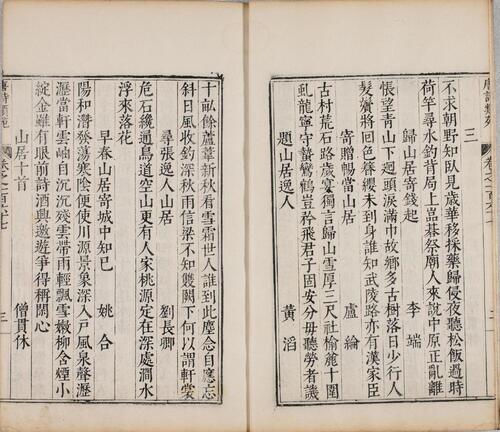 三
不求朝野知臥見歲華移採藥歸侵夜聽松飯過時
荷竿尋水釣背局上嵓碁祭廟人來說中原正亂離
歸山居寄錢起　李端
悵望青山下迴頭淚滿巾故鄉多古樹落日少行人
髮鬢將回色簪纓未到身誰知武陵路亦有漢家臣
寄贈暢當山居　盧綸
古村荒石路歲宴獨言歸山雪厚三尺社榆觕十圍
虬龍寧守蟄鸞鶴豈矜飛君子固安分毋聽勞者譏
題山居逸人　黃滔
十畝餘蘆葦新秋看雪霜世人誰到此塵念自應忘
斜日風收釣深秋雨信梁不知雙闕下何以謂軒裳
尋張逸人山居　劉長卿
危石纔通鳥道空山更有人家桃源定在深處澗水
浮來落花
早春山居寄城中知巳　姚合
陽和潛發蕩寒陰便使川源景象深入戶風泉聲瀝
瀝當軒雲岫自沉沉殘雲帶雨輕飄雪嫩柳含煙小
綻金雖有眼前詩酒興邀遊爭得稱閑心
山居十首　僧貫休
唐詩類苑
三